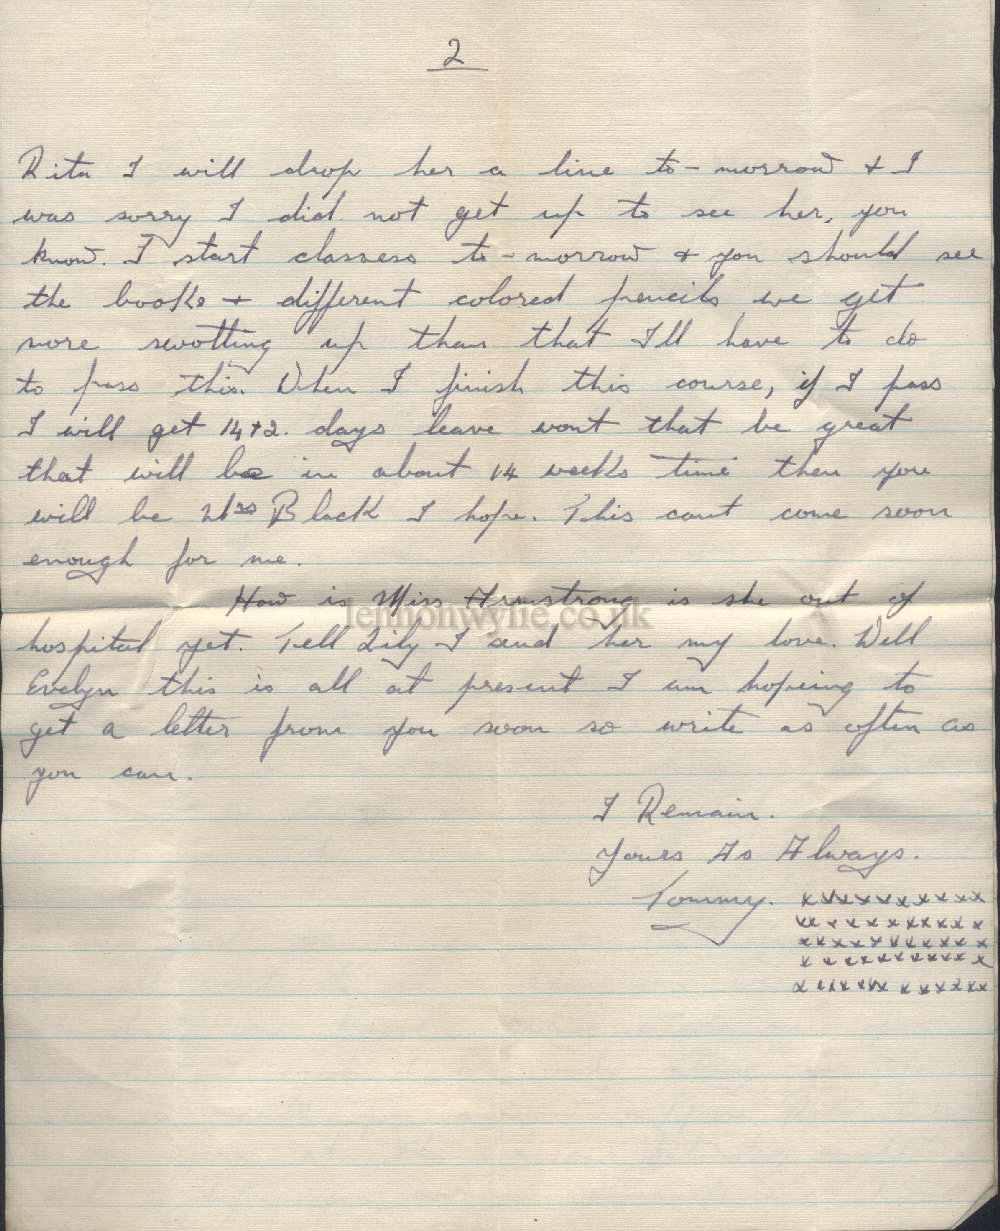 2
Rita I will drop her a line to-morrow & I
was sorry I did not get up to see her, you
know. I start classess to-morrow & you should see
the books & different colored pencils we get
more swotting up than that I'll have to do
to pass this. When I finish this course, if I pass
I will get 14+2. days leave wont that be great
that will be in about 14 weeks time then you
will be Mrs Black I hope. This cant come soon
enough for me.
How is Miss Armstrong is she out of
lennonwylie.co.uk
hospital yet. Tell Lily I send her my love. Well
Evelyn this is all at present I am hoping to
get a letter from you soon so write as often as
you can.
I Remain.
Yours As Always.
Tommy. xxxxxxxxxxx
xxxxxxxxxxx
xxxxxxxxxxxx
xxxxxxxxxxxx
xxxxxxx xxxxxx